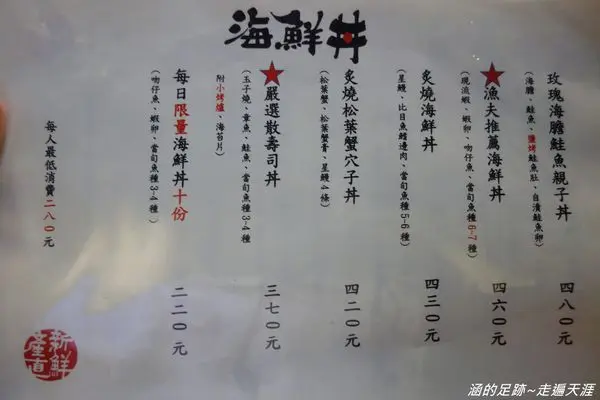 海鮮丼
玫瑰海膽鮭魚親子丼
(海膽、鮭魚、鹽烤鮭魚肚、自漬鮭魚卵)
四八0元
★漁夫推薦海鮮丼
(現流蝦、蝦卵、吻仔魚、當旬魚種6~7種)
四六0元
炙燒海鮮丼
(星鰻、比目魚鰭邊肉、當旬魚種5~6種)
四三0元
炙燒松葉蟹穴子丼
(松葉蟹、松葉蟹膏、星鰻4條)
四二0元
★嚴選散壽司丼
(玉子燒、章魚、鮭魚、當旬魚種3~4種)
附小烤爐、海苔片)
三七0元
每日限量海鮮丼十份
(吻仔魚、蝦卵、當旬魚種3~4種)
二二0元
每人最低消費二八0元
新鮮
產直
涵的足跡~走遍天涯